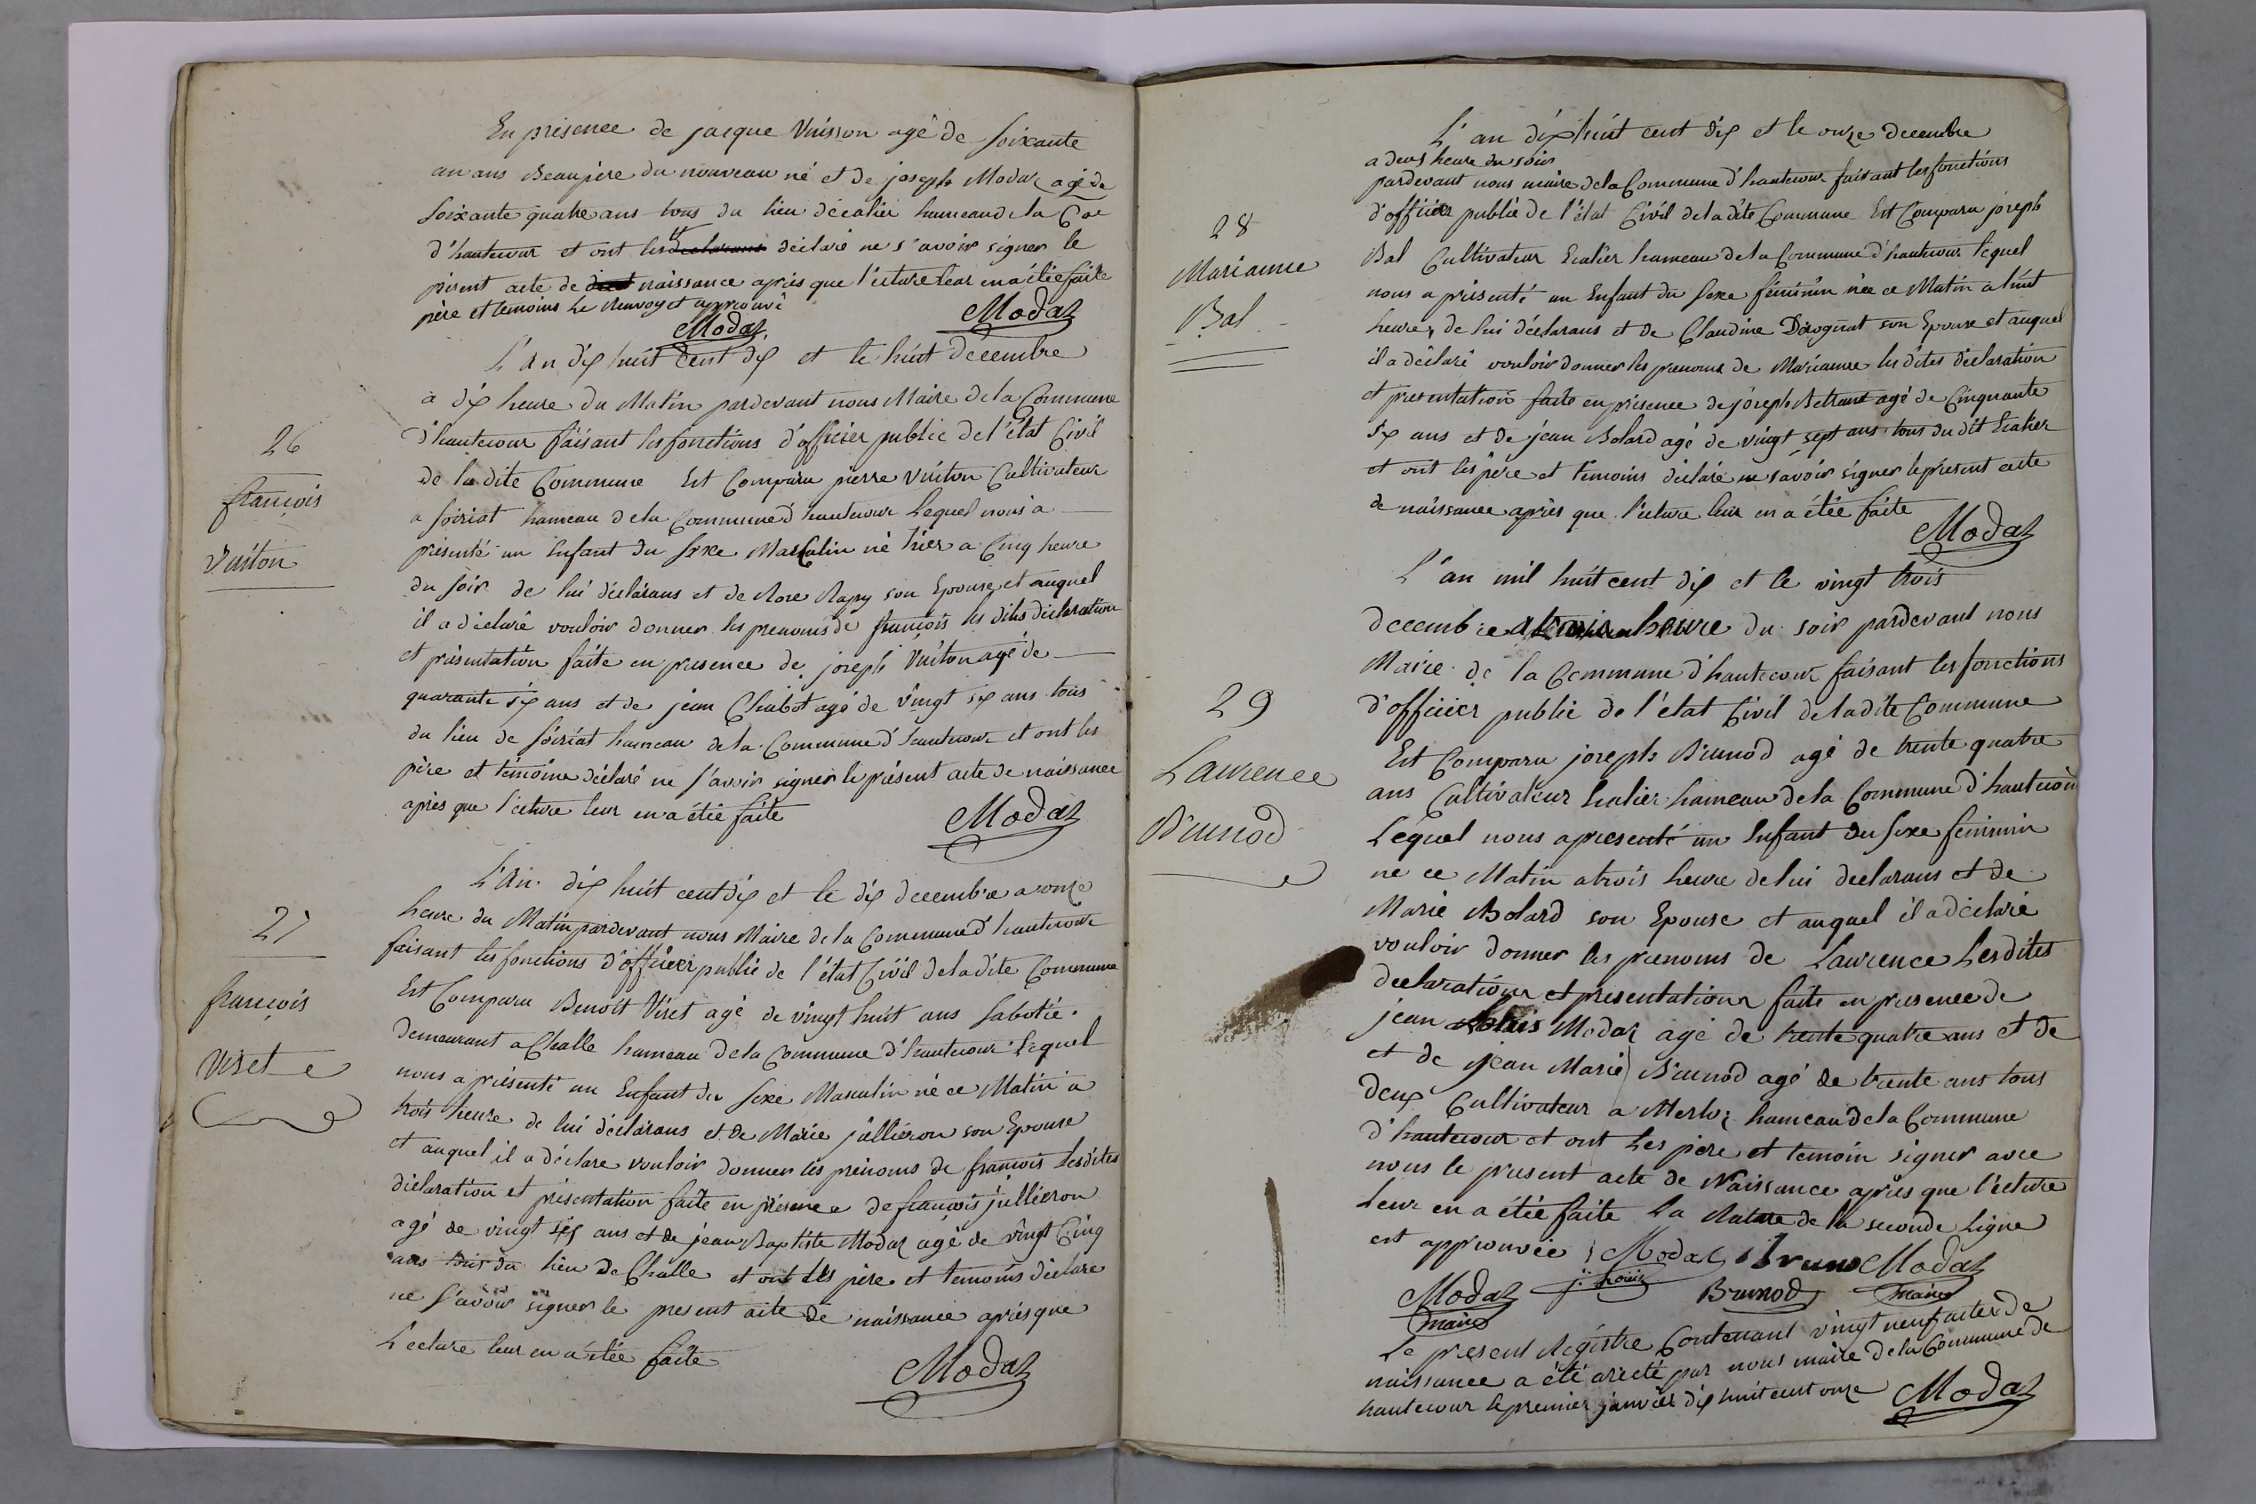 En présence de jacque Vuisson agé de soixante
un ans Beaupère du nouveau né et de joseph Modaz agé de
soixante quatre ans tous du lieu d'écalier hameau de la Coe
d'hautecour et ont les déclaré ne s'avoir signer le
présent acte de naissance après que l'ecture leur en a étée faite
père et temoins Le Renvoy et approuvé
Modaz
Modaz
L'An dix huit Cent dix et le huit decembre
a dix heure du Matin pardevant nous Maire de la Commune
d'hautecour faisant les fonctions d'officier public de l'état Civil
de la dite Commune Est Comparu pierre Vuiton Cultivateur
a soiriat hameau de la Commune d'hautecour Lequel nous a
présenté un Enfant du sexe Masculin né hier a Cinq heure
du soir de lui déclarans et de Rose Rapy son Epouse, et auquel
il a déclaré vouloir donner les prenoms de françois les dites déclaration
et présentation faite en presence de joseph Vuiton agé de
quarante six ans et de jean Chabot agé de vingt six ans tous
du lieu de soiriat hameau de la Commune d'hautecour et ont les
père et témoins déclaré ne s'avoir signer le présent acte de naissance
après que l'ecture leur en a étée faite
Modaz
26
françois
Vuiton
L'An dix huit cent dix et le dix decembre a onze
heure du Matin pardevant nous Maire de la Commune d'hautecour
faisant les fonctions d'officier public de l'état Civil de la dite Commune
Est Comparu Benoit Viret agé de vingt huit ans sabotié
demeurant a Challe hameau de la Commune d'hautecour Lequel
nous a présenté un Enfant du sexe Masculin né ce Matin a
trois heure de lui déclarans et de Marie jullieron son Epouse
et auquel il a déclaré vouloir donner les prénoms de françois Lesdites
déclaration et présentation faite en présence de françois jullieron
agé de vingt six ans et de jean Baptiste Modaz agé de vingt Cinq
ans tous du lieu de Challe et ont les père et temoins déclare
ne s'avoir signer le present acte de naissance après que
Lecture leur en a étée faite
Modaz
27
françois
Viret
L'an dix huit cent dix et le onze decembre
a deux heure du soir
pardevant nous maire de la Commune d'hautecour faisant les fonctions
d'officier public de l'état Civil de la dite Commune Est Comparu joseph
Bal Cultivateur Ecalier hameau de la Commune d'hautecour lequel
nous a présenté un Enfant du sexe féminin née ce Matin a huit
heure, de lui déclarans et de Claudine Dérognat son Epouse et auquel
il a déclaré vouloir donner les prenoms de Marianne les dites déclaration
et présentation faite en présence de joseph Bertrant agé de Cinquante
six ans et de jean Bolard agé de vingt sept ans tous du dit Ecalier
et ont les père et témoins déclaré ne savoir signer le présent acte
de naissance après que l'ecture leur en a étée faite
Modaz
28
Marianne
Bal
L'an mil huit cent dix et le vingt trois
decembre a trois heure du soir pardevant nous
Maire de la Commune d'hautecour faisant les fonctions
d'officier public de l'état Civil de la dite Commune
Est Comparu joseph Brunod agé de trente quatre
ans Cultivateur Ecalier hameau de la Commune d'hautecour
Lequel nous a presenté un Enfant du sexe féminin
né ce Matin a trois heure de lui declarans et de
Marie Bolard son Epouse et auquel il a déclaré
vouloir donner les prenoms de Laurence Lesdites
declarations et presentations faite en presence de
jean Louis Modaz agé de trente quatre ans et de
et de jean Marie Brunod agé de trente ans tous
deux Cultivateur a Merloz hameau de la Commune
d'hautecour et ont Les père et temoin signer avec
nous le present acte de Naissance après que l'ecture
Leur en a étée faite La Rature de la seconde Ligne
est approuvée Modaz Bruno Modaz
Modaz j: Louis Brunod maire
maire
29
Laurence
Brunod
Le present Régistre Contenant vingt neuf actes de
naissance a été areté par nous maire de la Commune de
hautecour le premier janvier dix huit cent onze Modaz